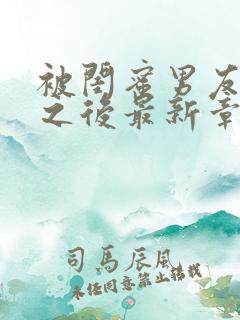 被閨蜜男友
之後最新章
司馬辰風
未经同意禁止转载